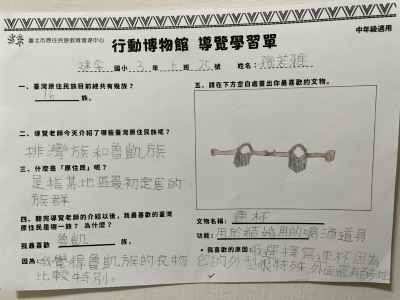 臺北市原住民族教育資源中心
行動博物館 導覽學習單
中年級適用
國小 3 年 6 班 25 號 姓名：
一、臺灣原住民族目前總共有幾族？
16 族。
二、導覽老師今天介紹了哪些臺灣原住民族呢？
排灣族和魯凱族
三、什麼是「原住民」呢？
是指某地區最初定居的
族群
四、聽完導覽老師的介紹以後，我最喜歡的臺灣
原住民是哪一族？為什麼？
我最喜歡 魯凱 族，
因為：我覺得魯凱族的衣物
比較特別。
五、請在下方空白處畫出你最喜歡的文物。
文物名稱：連杯
功能：用於結婚用的喝酒道具
我喜歡的原因：我選擇連杯因為
它的外型很特殊，外面還有